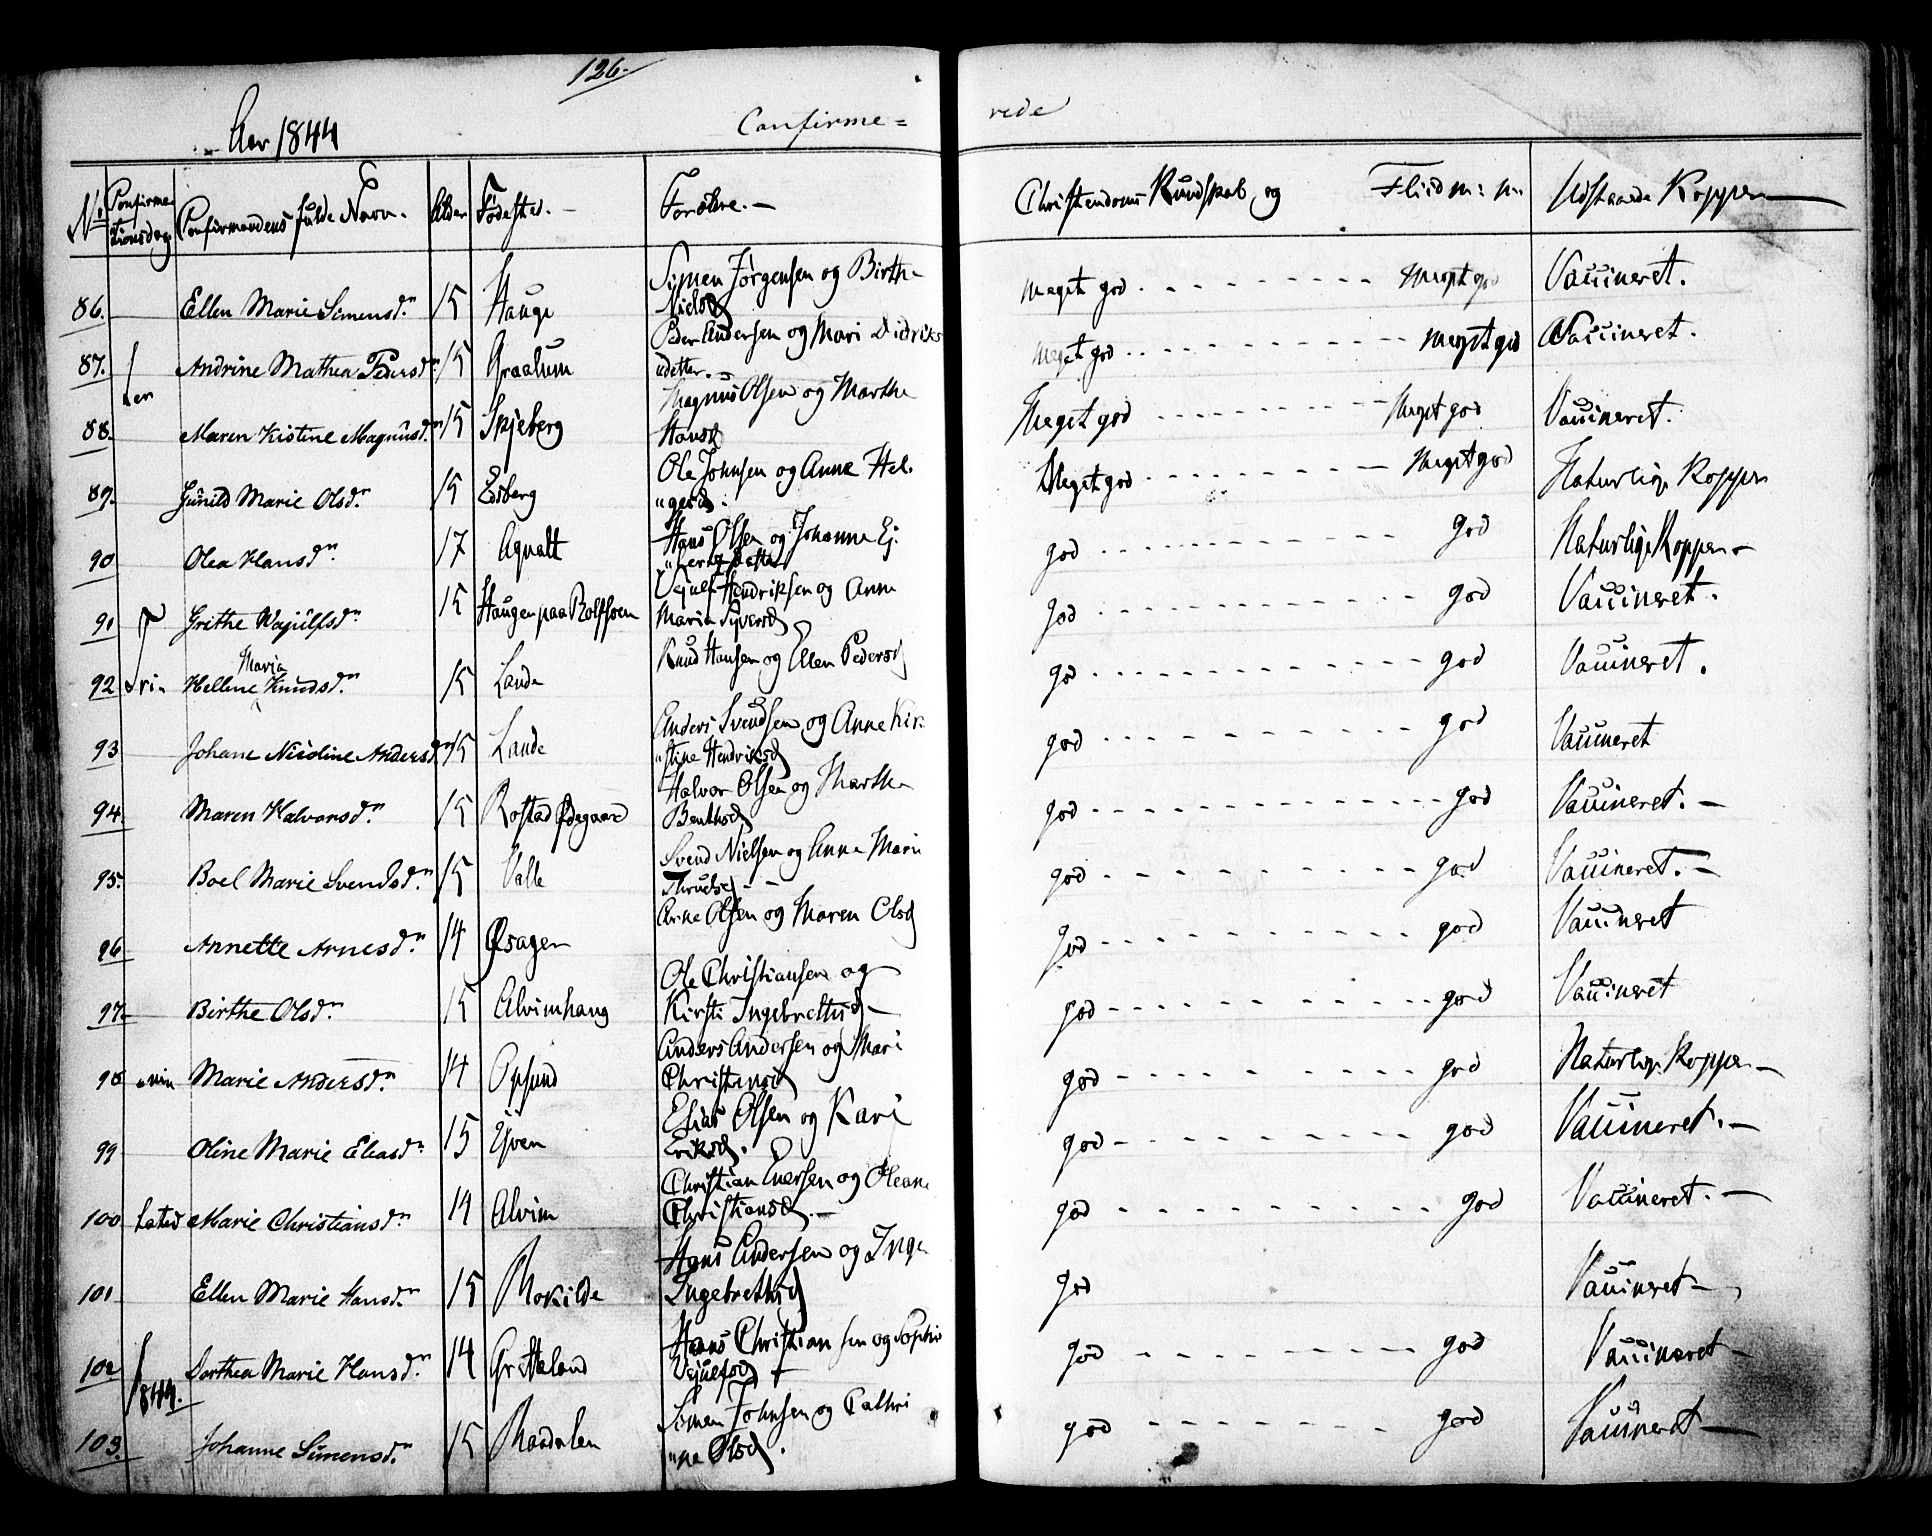 126.
Aar 1844
Confirme=
rede
No. Confirmationsdag. Confirmandens fulde Navn. Alder Fødested. Forældre. Christendoms Kundskab og Fliid m: m: Udstaaede Kopper
86. Ellen Marie Simensd. 15 Hauge Symen Jørgensen og Birthe
Nielsd meget god meget god Vaccineret.
87. Andrine Mathea Pedersd. 15 Graalum Peder Andersen og Mari Didriks
datter. meget god meget god Vaccineret.
88. Maren Kistine Magnusd. 15 Skjeberg Magnus Olsen og Marthe
Hansd Meget god Meget god Vaccineret.
89. Gunild Marie Olsd. 15 Edsberg Ole Johnsen og Anne Hel-
"gesd. Meget god Meget god Naturlige Kopper
90 Olea Hansd. 17 Agnalt Hans Olsen og Johanne Ej-
god god Naturlige Kopper
91 Grithe Wajulfsd. 15 Haugen paa Rolfsøen Vejulf Hendriksen og Anne
Maria Syversd god god Vaccineret.
92 Hellene Maria Knudsd. 15 Lande Knud Hansen og Ellen Pedersd god god Vaccineret.
93 Johane Nicoline Andersd. 15 Lande Anders Svendsen og Anne Kir-
"stine Hendriksd god god Vaccineret
94. Maren Halvorsd. 15 Rostad Ødegaard Halvor Olsen og Marthe
Benthsd god god Vaccineret.
95. Boel Marie Svendsd. 15 Valle Svend Nielsen og Anne Marie
Thrudsd god god Vaccineret.
96 Annette Arnesd. 14 Øsagen Arne Olsen og Maren Olsd god god Vaccineret
97. Birthe Olsd. 15 Alvimhaug Ole Christiansen og
Kirsti Ingebretsd god god Vaccineret
98 Marie Andersd. 14 Opsund Anders Andersen og Mari
Christensd god god Naturlige Kopper
99 Oline Marie Eliasd. 15 Yven Elias Olsen og Kari
Eriksd. god god Vaccineret.
100 Marie Christiansd. 14 Alvim Christian Iversen og Oleane
Christiansd. god god Vaccineret.
101 Ellen Marie Hansd. 15 Rokilde Hans Andersen og Inge
Ingebretsd god Vaccineret
102 Dorthea Marie Hansd. 14 Gretteland Hans Christiansen og Sophie
Vejulfsd god god Vaccineret
1844.
103. Johanne Simensd. 15 Simen Johnsen og Cathri
"ne Olsd. god god Vaccineret